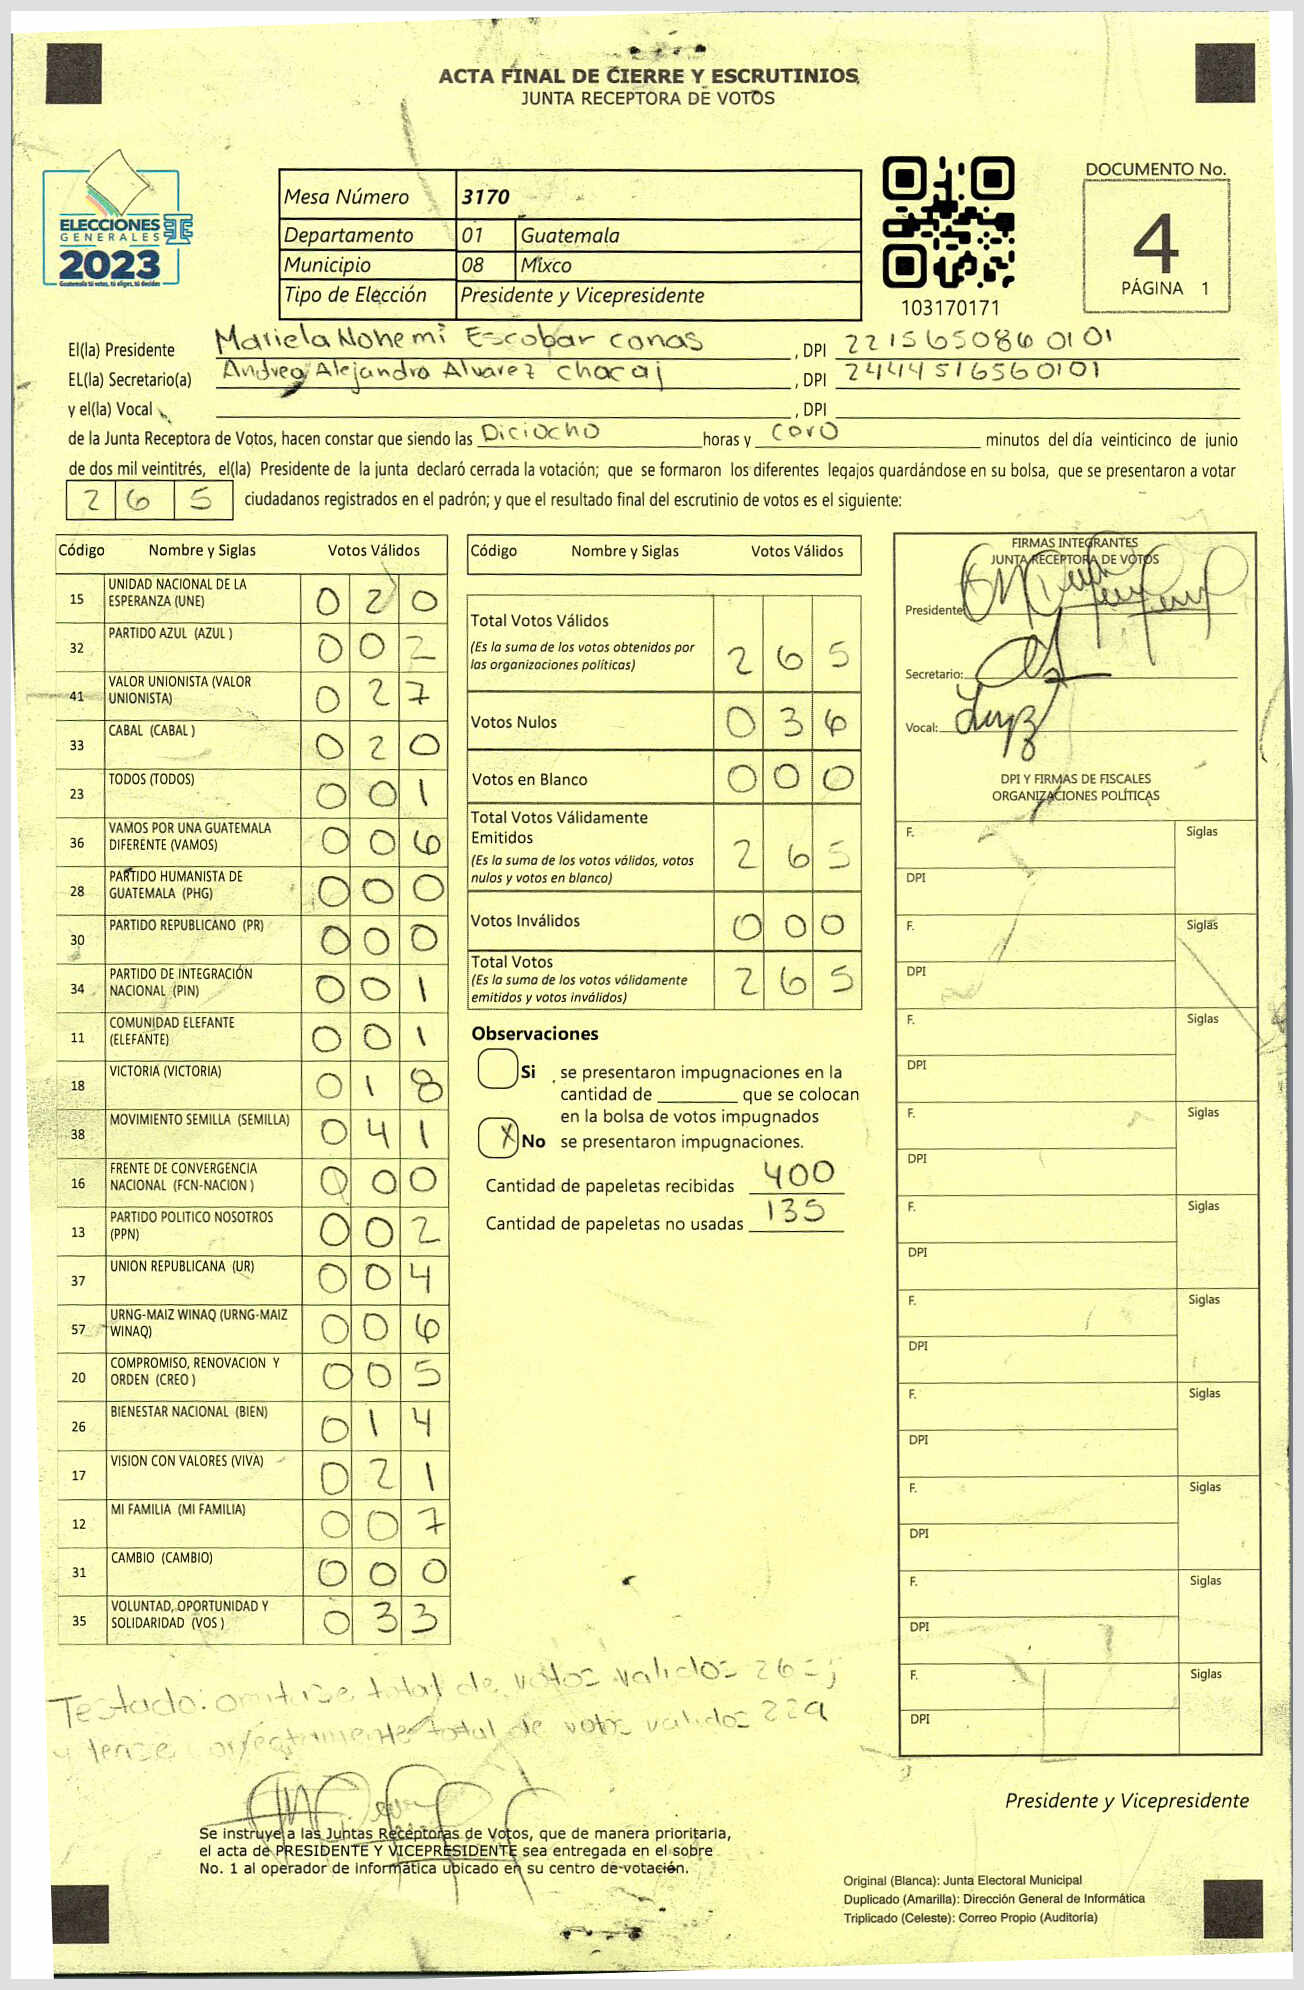 ACTA FINAL DE CIERRE Y ESCRUTINIOS
JUNTA RECEPTORA DE VOTOS
ELECCIONES
GENERALES
2023
Guatemala tú votas, tú eliges, tú decides
Mesa Número 3170
Departamento 01 Guatemala
Municipio 08 Mixco
Tipo de Elección Presidente y Vicepresidente
103170171
DOCUMENTO No.
4
PÁGINA 1
El(la) Presidente Mariela Nohemi Escobar canas , DPI 2215650860101
EL(la) Secretario(a) Andrea Alejandra Alvarez chacaj , DPI 2444516560101
y el(la) Vocal , DPI
de la Junta Receptora de Votos, hacen constar que siendo las Diciocho horas y cero minutos del día veinticinco de junio
de dos mil veintitrés, el(la) Presidente de la junta declaró cerrada la votación; que se formaron los diferentes legajos guardándose en su bolsa, que se presentaron a votar
265 ciudadanos registrados en el padrón; y que el resultado final del escrutinio de votos es el siguiente:
Código Nombre y Siglas Votos Válidos
15 UNIDAD NACIONAL DE LA ESPERANZA (UNE) 020
32 PARTIDO AZUL (AZUL ) 002
41 VALOR UNIONISTA (VALOR UNIONISTA) 027
33 CABAL (CABAL ) 020
23 TODOS (TODOS) 001
36 VAMOS POR UNA GUATEMALA DIFERENTE (VAMOS) 006
28 PARTIDO HUMANISTA DE GUATEMALA (PHG) 000
30 PARTIDO REPUBLICANO (PR) 000
34 PARTIDO DE INTEGRACIÓN NACIONAL (PIN) 001
11 COMUNIDAD ELEFANTE (ELEFANTE) 001
18 VICTORIA (VICTORIA) 018
38 MOVIMIENTO SEMILLA (SEMILLA) 041
16 FRENTE DE CONVERGENCIA NACIONAL (FCN-NACION ) 000
13 PARTIDO POLITICO NOSOTROS (PPN) 002
37 UNION REPUBLICANA (UR) 004
57 URNG-MAIZ WINAQ (URNG-MAIZ WINAQ) 006
20 COMPROMISO, RENOVACION Y ORDEN (CREO ) 005
26 BIENESTAR NACIONAL (BIEN) 014
17 VISION CON VALORES (VIVA) 021
12 MI FAMILIA (MI FAMILIA) 007
31 CAMBIO (CAMBIO) 000
35 VOLUNTAD, OPORTUNIDAD Y SOLIDARIDAD (VOS ) 033
Código Nombre y Siglas Votos Válidos
Total Votos Válidos 265
(Es la suma de los votos obtenidos por
las organizaciones políticas)
Votos Nulos 036
Votos en Blanco 000
Total Votos Válidamente
Emitidos 265
(Es la suma de los votos válidos, votos
nulos y votos en blanco)
Votos Inválidos 000
Total Votos 265
(Es la suma de los votos válidamente
emitidos y votos inválidos)
Observaciones
Si se presentaron impugnaciones en la
cantidad de ________ que se colocan
en la bolsa de votos impugnados
X No se presentaron impugnaciones.
Cantidad de papeletas recibidas 400
Cantidad de papeletas no usadas 135
FIRMAS INTEGRANTES
JUNTA RECEPTORA DE VOTOS
Presidente:
Secretario:
Vocal:
DPI Y FIRMAS DE FISCALES
ORGANIZACIONES POLÍTICAS
F. Siglas
DPI
F. Siglas
DPI
F. Siglas
DPI
F. Siglas
DPI
F. Siglas
DPI
F. Siglas
DPI
F. Siglas
DPI
F. Siglas
DPI
F. Siglas
DPI
F. Siglas
DPI
Testado: omitase total de votos validos 265
y lease correctamente total de votos validos 229
Presidente y Vicepresidente
Se instruye a las Juntas Receptoras de Votos, que de manera prioritaria,
el acta de PRESIDENTE Y VICEPRESIDENTE sea entregada en el sobre
No. 1 al operador de informática ubicado en su centro de votación.
Original (Blanca): Junta Electoral Municipal
Duplicado (Amarilla): Dirección General de Informática
Triplicado (Celeste): Correo Propio (Auditoría)